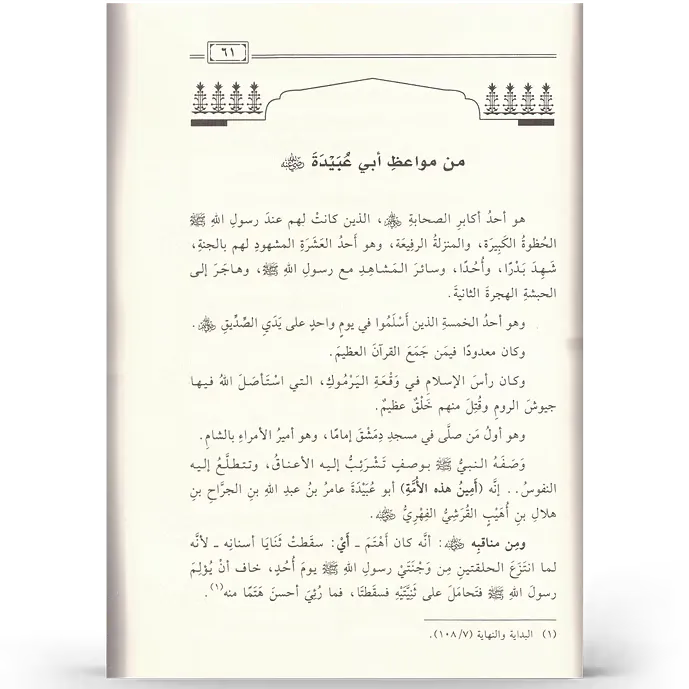 ٦١
من مواعظِ أبي عُبَيْدَةَ ﵁
هو أحدُ أكابرِ الصحابةِ ﵃، الذين كانتْ لهم عندَ رسولِ اللهِ ﷺ
الحُظوةُ الكَبِيرَة، والمنزلةُ الرفِيعَة، وهو أَحدُ العَشَرَةِ المشهودِ لهم بالجنةِ،
شَهِدَ بَدْرًا، وأُحُدًا، وسائرَ المَشاهِدِ مع رسولِ اللهِ ﷺ، وهاجَرَ إلى
الحبشةِ الهجرةَ الثانيةَ.
وهو أحدُ الخمسةِ الذين أَسْلَمُوا في يومٍ واحدٍ على يَدَيِ الصِّدِّيقِ ﵁.
وكان معدودًا فيمَن جَمَعَ القرآنَ العظيمَ.
وكان رأسَ الإسلامِ في وَقْعَةِ اليَرْمُوكِ، التي اسْتَأصَلَ اللهُ فيها
جيوشَ الرومِ وقُتِلَ منهم خَلْقٌ عظيمٌ.
وهو أولُ مَن صلَّى في مسجدِ دِمَشْقَ إمامًا، وهو أميرُ الأمراءِ بالشامِ.
وَصَفَهُ النبيُّ ﷺ بوصفٍ تَشْرَئِبُّ إليه الأعناقُ، وتتطلَّعُ إليه
النفوسُ.. إنَّه (أَمِينُ هذه الأُمَّةِ) أبو عُبَيْدَةَ عامرُ بنُ عبدِ اللهِ بنِ الجرَّاحِ بنِ
هلالِ بنِ أُهَيْبٍ القُرَشِيُّ الفِهْرِيُّ ﵁.
ومِن مناقبِه ﵁: أنَّه كان أَهْتَمَ ـ أَيْ: سقطتْ ثَنَايَا أسنانِه ـ لأنَّه
لما انتَزَعَ الحلقتينِ مِن وَجْنَتَيْ رسولِ اللهِ ﷺ يومَ أُحُدٍ، خاف أنْ يُؤْلِمَ
رسولَ اللهِ ﷺ فتَحامَلَ على ثَنِيَّتَيْهِ فسقطتَا، فما رُئِيَ أحسنَ هَتَمًا منه(١).
(١) البداية والنهاية (٧/ ١٠٨).